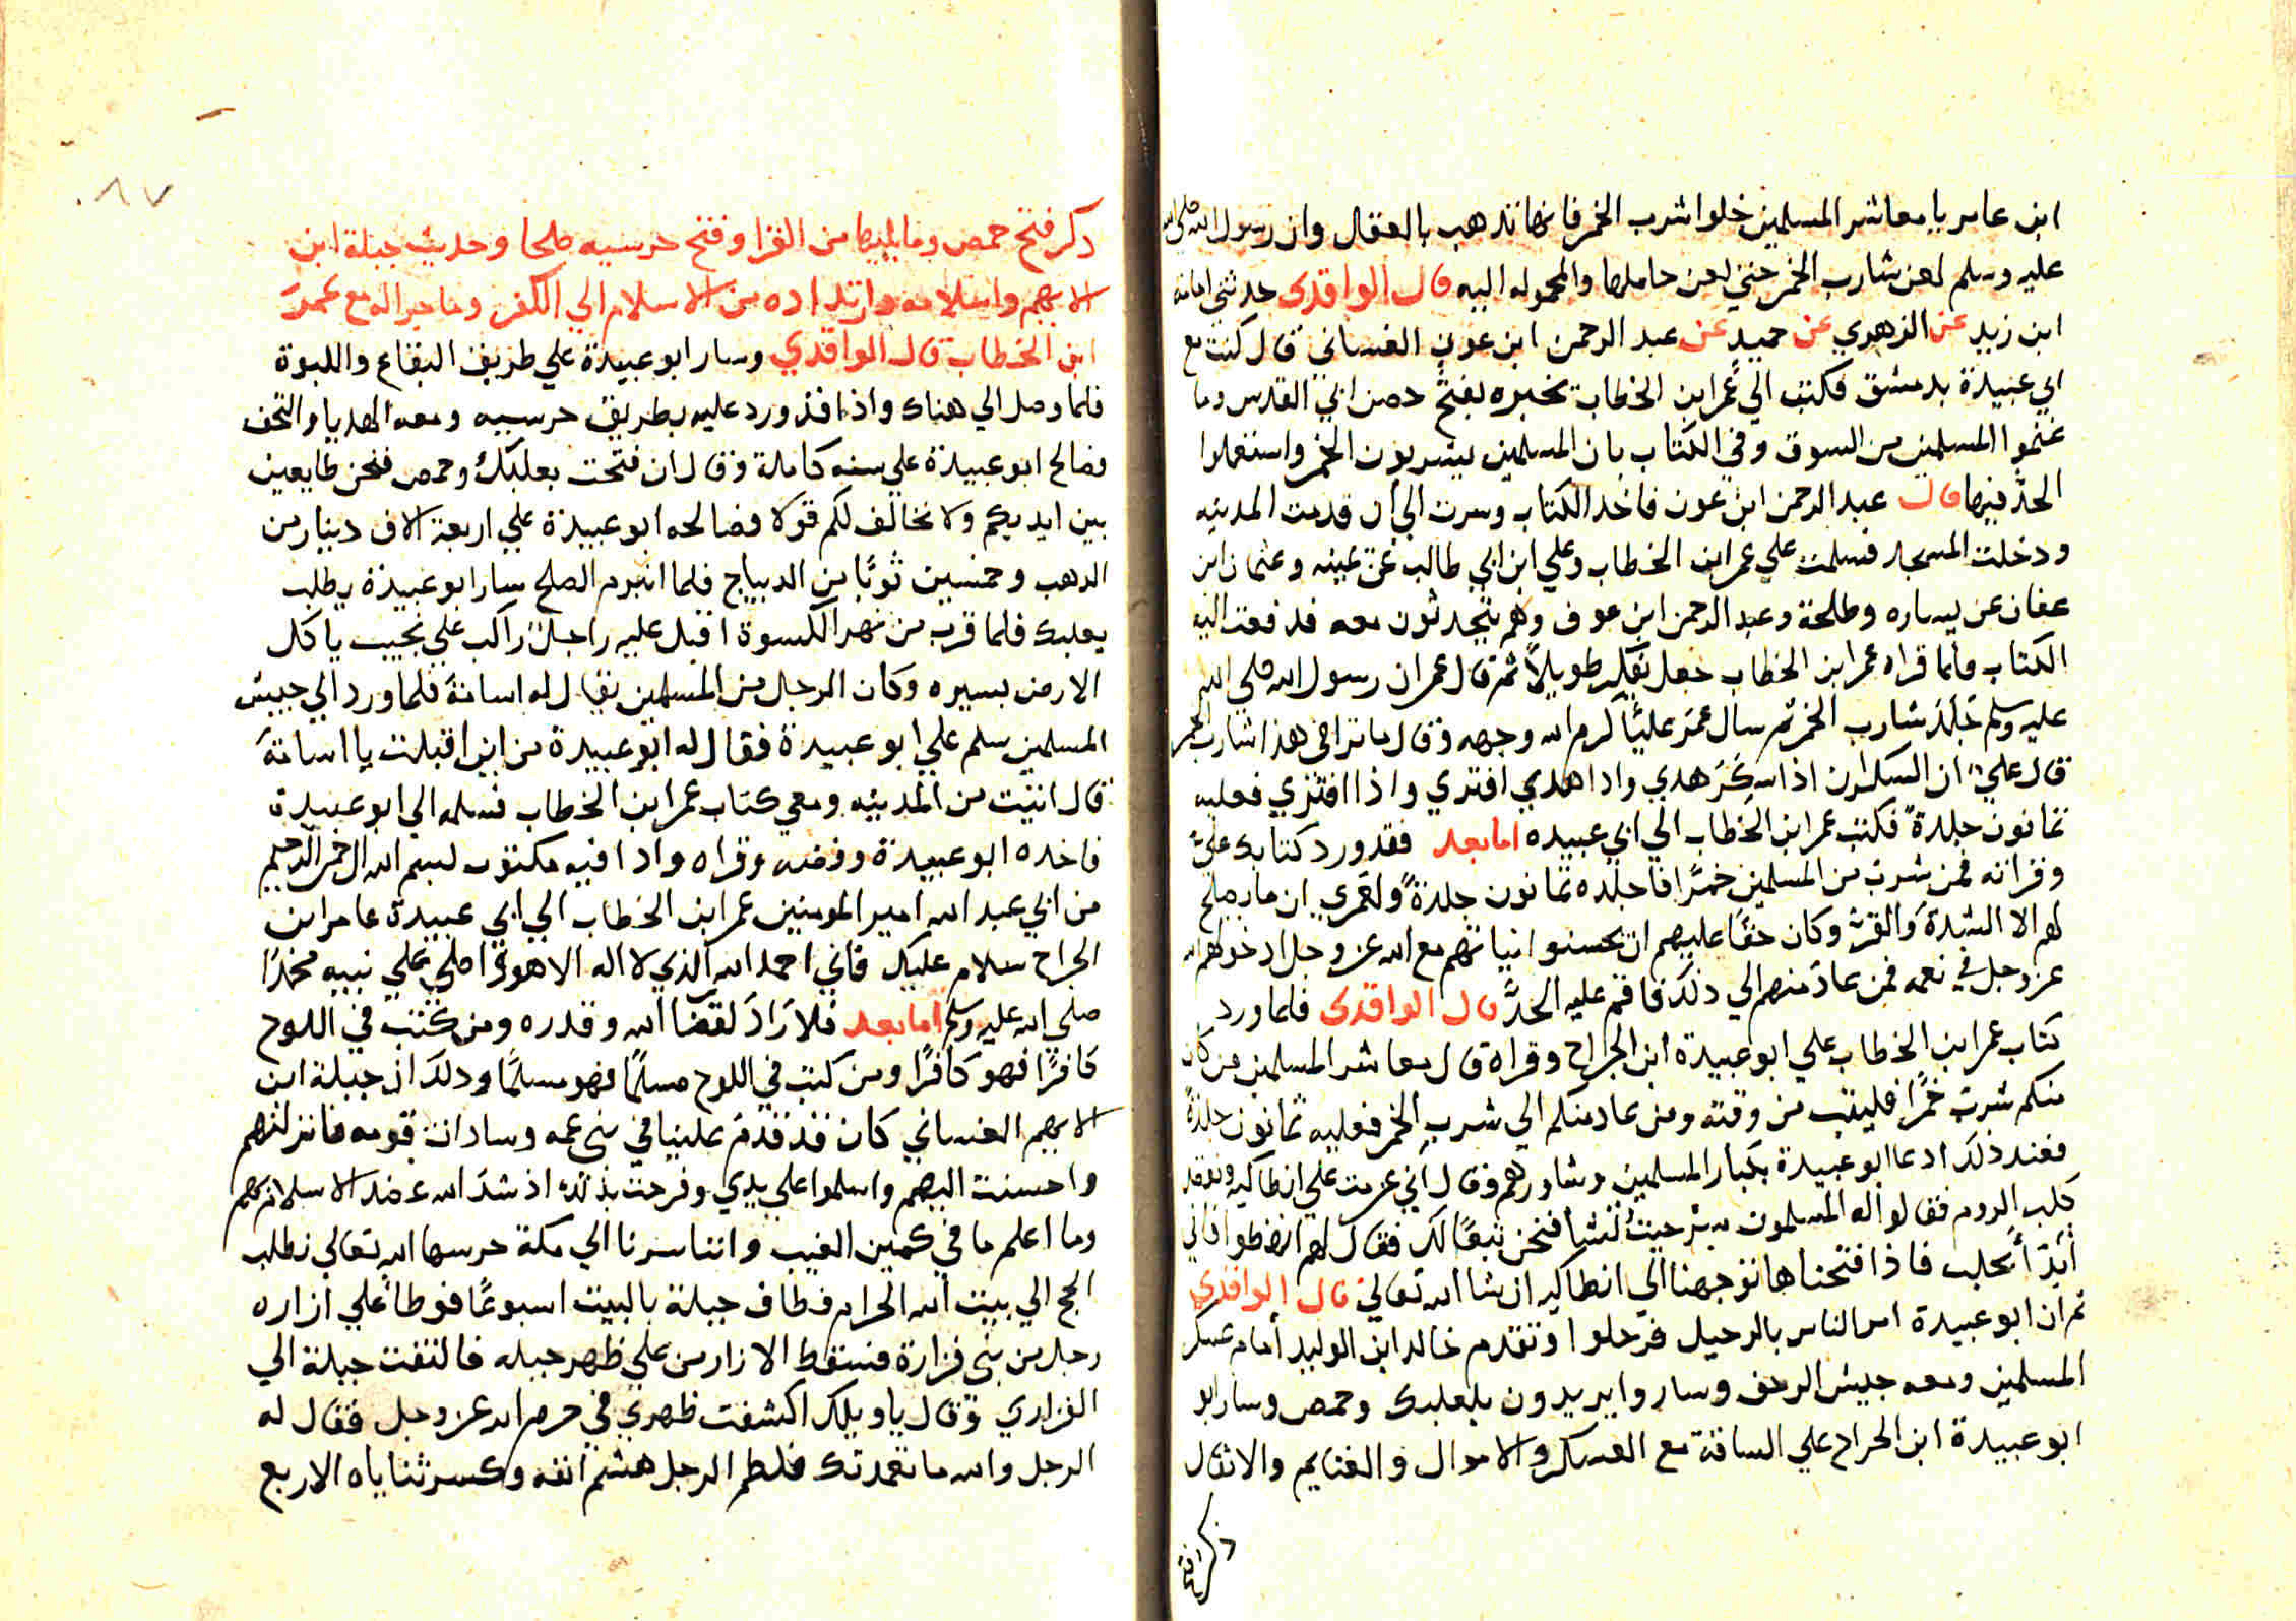 ابن عامر يا معاشر المسلمين خلوا شرب الخمر فانها تدهب بالعقال وان رسول الله صلي الله
عليه وسلم لعن شارب الخمر حتي لعن حاملها والمحموله اليه قال الواقدي حدثني اسامة
ابن زيد عن الزهري عن حميد عن عبد الرحمن ابن عون الغساني قال كنت مع
ابي عبيدة بدمشق فكتب الي عمر ابن الخطاب تخبره بفتح حصن ابي القدس وما
غنموا المسلمين من السوق وفي الكتاب بان المسلمين يشربون الخمر واستعملوا
الحد فيها قال عبد الرحمن ابن عون فاخد الكتاب وسرت الي ان قدمت المدينه
ودخلت المسجد فسلمت علي عمر ابن الخطاب وعلي ابن ابي طالب عن يمينه وعثمان ابن
عفان عن يساره وطلحة وعبد الرحمن ابن عوف وهم يتحدثون معه فدفعت اليه
الكتاب فلما قراه عمر ابن الخطاب جعل يفكر طويلاً ثم قال عمر ان رسول الله صلي الله
عليه وسلم جلد شارب الخمر ثم سال عمر عليًا كرم الله وجهه وقال ما ترا في هذا شارب الخمر
قال علي ان السكران اذا سكر هدي وادا هدي افتري واذا افتري فعليه
ثمانون جلدة فكتب عمر ابن الخطاب الي ابي عبيده اما بعد فقد ورد كتابك علي
وقراته فمن شرب من المسلمين خمرًا فاجلده ثمانون جلدةً ولعمري ان ما يصلح
لهم الا الشدة والقر وكان حقًا عليهم ان يحسنوا انياتهم مع الله عز وجل
عز وجل في نعمه فمن عاد منهم الي ذلك فاقم عليه الحد قال الواقدي فلما ورد
كتاب عمر ابن الخطاب علي ابو عبيدة ابن الجراح وقراة قال معاشر المسلمين من كان
منكم شرب خمرًا فليتب من وقته ومن عاد منكم الي شرب الخمر فعليه ثمانون جلدةً
فعند ذلك ادعا ابو عبيدة بكبار المسلمين وشاورهم وقال اني عزمت علي انطاكيه ونقصد
كلب الروم فقالوا له المسلمون سر حيث تشا فنحن تبعًا لك فقال لهم فاني
ابدا بحلب فاذا فتحناها توجهنا الي انطاكيه ان شا الله تعالي قال الواقدي
ثم ان ابو عبيدة امر الناس بالرحيل فرحلوا وتقدم خالد ابن الوليد أمام عسكر
المسلمين ومعه جيش الزحف وساروا يريدون بلعلبك وحمص وسار ابو
ابو عبيدة ابن الجراح علي الساقة مع العسكر والاموال والغنايم والاثقال
ذكر فتح
٨٧
ذكر فتح حمص وما يليها من القرا وفتح حرسيه صلحا وحديث جبلة ابن
الايهم واسلامه وارتداده من الاسلام الي الكفر وما جراله مع عمر
ابن الخطاب قال الواقدي وسار ابو عبيدة علي طريق البقاع واللبوة
فلما وصل الي هناك واذا قد ورد عليه بطريق حرسيه ومعه الهديا والتحف
فصالح ابو عبيدة علي سنه كاملة وقال ان فتحت بعلبك وحمص فنحن طايعين
بين ايديكم ولا نخالف لكم قولا فصالحه ابو عبيدة علي اربعة الاف دينار من
الدهب وخمسين ثوبًا من الديباج فلما انبرم الصلح سار ابو عبيدة يطلب
بعلبك فلما قرب من نهر الكسوة اقبل عليه راجل راكب علي نجيب ياكل
الارض بسيره وكان الرجل من المسلمين يقال له اسامة فلما ورد الي جيش
المسلمين سلم علي ابو عبيدة فقال له ابو عبيدة من اين اقبلت يا اسامة
قال اتيت من المدينه ومعي كتاب عمر ابن الخطاب فسلمه الي ابو عبيدة
فاخده ابو عبيدة وفضه وقراه وادا فيه مكتوب بسم الله الرحمن الرحيم
من ابي عبد الله امير المومنين عمر ابن الخطاب الي ابي عبيدة عامر ابن
الجراح سلام عليك فاني احمد الله الذي لا اله الا هو واصلي علي نبيه محمدًا
صلي الله عليه وسلم اما بعد فلا راد لقضا الله وقدره ومن كتب في اللوح
كافرًا فهو كافرًا ومن كتب في اللوح مسلمًا فهو مسلمًا ودلك ان جبلة ابن
الايهم الغساني كان قد قدم علينا في بني عمه وسادات قومه فانزلتهم
واحسنت اليهم واسلموا علي يدي وفرحت بذلك اذ شد الله عضد الاسلام بهم
وما اعلم ما في كمين الغيب واننا سرنا الي مكة حرسها الله تعالي نطلب
الحج الي بيت الله الحرام فطاف جبلة بالبيت اسبوعًا فوطا علي ازاره
رجل من بني فزارة فسقط الازار من علي ظهر جبله فالتفت جبلة الي
الفزاري وقال يا ويلك اكشفت ظهري في حرم الله عز وجل فقال له
الرجل والله ما تعمدتك فلطم الرجل هشم أنفه وكسر ثناياه الاربع